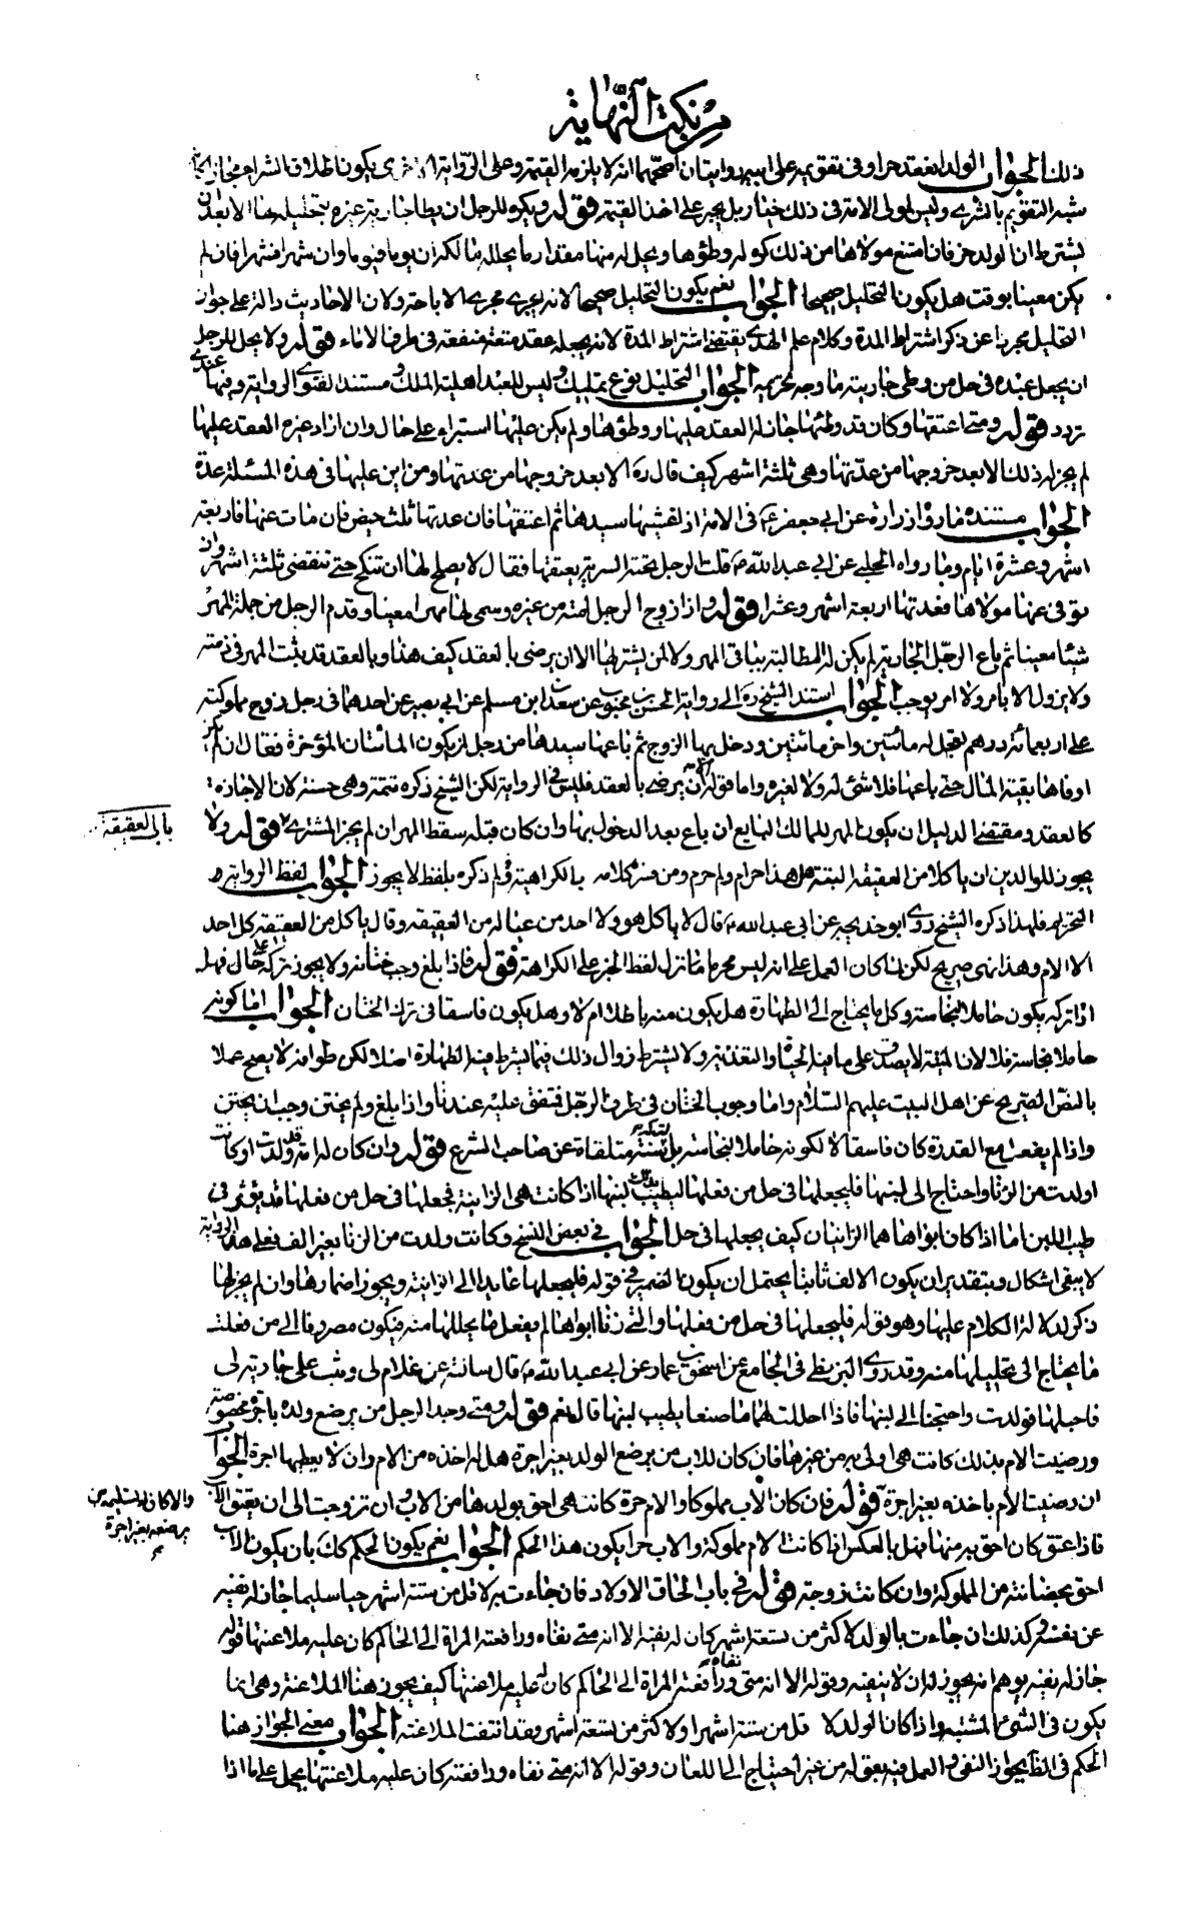 من نكت النهاية
ذلك الجواب الولد انعقد حرا وفى تقويمه على ابيه روايتان اصحهما انه لا يلزمه القيمة وعلى الرواية يكون اطلاق الشراء مجازا
شبه التقويم بالشرى وليس لمولى الامة فى ذلك خيار بل يجبر على اخذ القيمة قوله ويكره للرجل ان يطأ جارية غيره بتحليله لها الا بعد ان
يشترط ان الولد حر فان امتنع مولاها من ذلك كره له وطؤها ويحل له منها مقدار ما يحلله مالكه ان يوما فيوما وان شهرا فشهرا فان لم
يكن معينا بوقت هل يكون التحليل صحيحا الجواب نعم يكون التحليل صحيحا لانه يجرى مجرى الاباحة ولان الاحاديث دالة على جواز
التحليل مجردا عن ذكر اشتراط المدة وكلام علم الهدى يقتضى اشتراط المدة لانه يجعله عقد متعة منفعة فى طرف الاماء قوله ولا يحل للرجل
ان يجعل عبده فى حل من وطى جاريته ما وجه تحريمه الجواب التحليل نوع تمليك وليس للعبد اهلية الملك ومستند الفتوى الرواية وفيها عندى
تردد قوله ومتى اعتقها وكان قد وطئها جاز له العقد عليها ووطؤها ولم يكن عليها استبراء على حال وان اراد غيره العقد عليها
لم يجز له ذلك الا بعد خروجها من عدتها وهى ثلثة اشهر كيف قال ره الا بعد خروجها من عدتها ومن اين عليها فى هذه المسئلة عدة
الجواب مستنده ما رواه زرارة عن ابى جعفر ع فى الامة اذا غشيها سيدها ثم اعتقها فان عدتها ثلث حيض فان مات عنها فاربعة
اشهر وعشرة ايام وما رواه الحلبى عن ابى عبد الله ع قلت الرجل تحته السرية يعتقها فقال لا يصلح لها ان تنكح حتى تنقضى ثلثة اشهر وان
توفى عنها مولاها فعدتها اربعة اشهر وعشرا قوله واذا زوج الرجل امته من غيره وسمى لها مهرا معينا وقدم الرجل من جملة المهر
شيئا معينا ثم باع الرجل الجارية لم يكن له المطالبة بباقى المهر ولا لمن يشتريها الا ان يرضى بالعقد كيف هذا وبالعقد قد يثبت المهر فى ذمته
ولا يزول الا بامر ولا امر يوجب الجواب استند الشيخ ره الى رواية الحسن بن محبوب عن سعدان بن مسلم عن ابى بصير عن احدهما فى رجل زوج مملوكته
على اربعمائة درهم فعجل له مائتين واخر مائتين ودخل بها الزوج ثم باعها سيدها من رجل لمن يكون المائتان المؤخرة فقال ان لم يكن
اوفاها بقية المال حتى باعها فلا شئ له ولا لغيره واما قوله الا ان يرضى بالعقد فليس فى الرواية لكن الشيخ ذكره تتمة وهى حسنة لان الاجازة
كالعقد ومقتضى الدليل ان يكون المهر للمالك البايع ان باع بعد الدخول بها وان كان قبله سقط المهر ان لم يجز المشترى قوله ولا
باب العقيقة
يجوز للوالدين ان ياكلا من العقيقة البتة هل هذا حرام ولم حرم ومن فسر كلامه بالكراهية فلم ذكره بلفظ لا يجوز الجواب لفظ الرواية
التحريم فلهذا ذكره الشيخ روى ابو خديجة عن ابى عبد الله ع قال لا ياكل هو ولا احد من عياله من العقيقة وقال ياكل من العقيقة كل احد
الا الام وهذا نهى صريح لكن لما كان العمل على انه ليس محرما نزل لفظ الخبر على الكراهة قوله فاذا بلغ وجب ختانه ولا يجوز تركه على حال فهل
اذا تركه يكون حاملا لنجاسة وكل ما يحتاج الى الطهارة هل يكون منه باطلا ام لا وهل يكون فاسقا فى ترك الختان الجواب اما كونه
حاملا نجاسة فلا لان الميتة لا يصدق على ما فيه الحياة والتغذية ولا يشترط زوال ذلك فيما يشترط فيه الطهارة اصلا لكن طوافه لا يصح عملا
بالنص الصريح عن اهل البيت عليهم السلام واما وجوب الختان فى طرف الرجل فمتفق عليه عندنا واذا بلغ ولم يختن وجب ان يختن
واذا لم يفعل مع القدرة كان فاسقا لا لكونه حاملا لنجاسة بل لتركه سنة متلقاة عن صاحب الشرع قوله وان كان له امة قد ولدت او كانت
ولدت من الزنا واحتاج الى لبنها فليجعلها فى حل من فعلها ليطيب بذلك لبنها اذا كانت هى الزانية فجعلها فى حل من فعلها قد يؤثر فى
طيب اللبن اما اذا كان ابواها هما الزانيان كيف يجعلها فى حل الجواب فى بعض النسخ وكانت ولدت من الزنا بغير الف فعلى هذه الرواية
لا يبقى اشكال وبتقدير ان يكون الالف ثابتا يحتمل ان يكون الضمير فى قوله فليجعلها عايدا الى الزانية ويجوز اضمارها وان لم يجر لها
ذكر لدلالة الكلام عليها وهو قوله فليجعلها فى حل من فعلها والتى زنا ابواها لم يفعل ما يحللها منه فيكون مصروفا الى من فعلت
ما يحتاج الى تحليلها منه وقد روى البزنطى فى الجامع عن اسحق بن عمار عن ابى عبد الله ع قال سالته عن غلام لى وثب على جارية لى
فاحبلها فولدت واحتجنا الى لبنها فاذا احللت لهما ما صنعا يطيب لبنها قال نعم قوله ومتى وجد الرجل من يرضع ولده باجرة مخصوصة
ورضيت الام بذلك كانت هى اولى به من غيرها فان كان للاب من يرضع الولد بغير اجرة هل له اخذه من الام وان لا يعطيها اجرة الجواب
ان رضيت الام باخذه بغير اجرة قوله فان كان الاب مملوكا والام حرة كانت هى احق بولدها من الاب وان تزوجت الى ان يعتق الاب
والا كان له تسليمه من
يرضعه بغير اجرة
فاذا عتق كان احق به منها فهل بالعكس اذا كانت الام مملوكة والاب حرا يكون هذا الحكم الجواب نعم يكون الحكم كك بان يكون الاب
احق بحضانته من المملوكة وان كانت زوجته قوله فى باب الحاق الاولاد فان جاءت به لاقل من ستة اشهر حيا سليما جاز له نفيه
عن نفسه وكذلك ان جاءت بالولد لاكثر من تسعة اشهر كان له نفيه الا انه متى نفاه ورافعته المراة الى الحاكم كان عليه ملاعنتها قوله
جاز له نفيه يوهم انه يجوز له ان لا ينفيه وقوله الا انه متى نفاه ورافعته المراة الى الحاكم كان عليه ملاعنتها كيف يجوز هنا الملاعنة وهى انما
يكون فى الشئ المشتبه واذا كان الولد لاقل من ستة اشهر او لاكثر من تسعة اشهر فقد انتفت الملاعنة الجواب معنى الجواز هنا
الحكم فى الظاهر بجواز النفى والعمل فيه بقوله من غير احتياج الى اللعان وقوله الا انه متى نفاه ورافعته كان عليه ملاعنتها يحمل على ما اذا